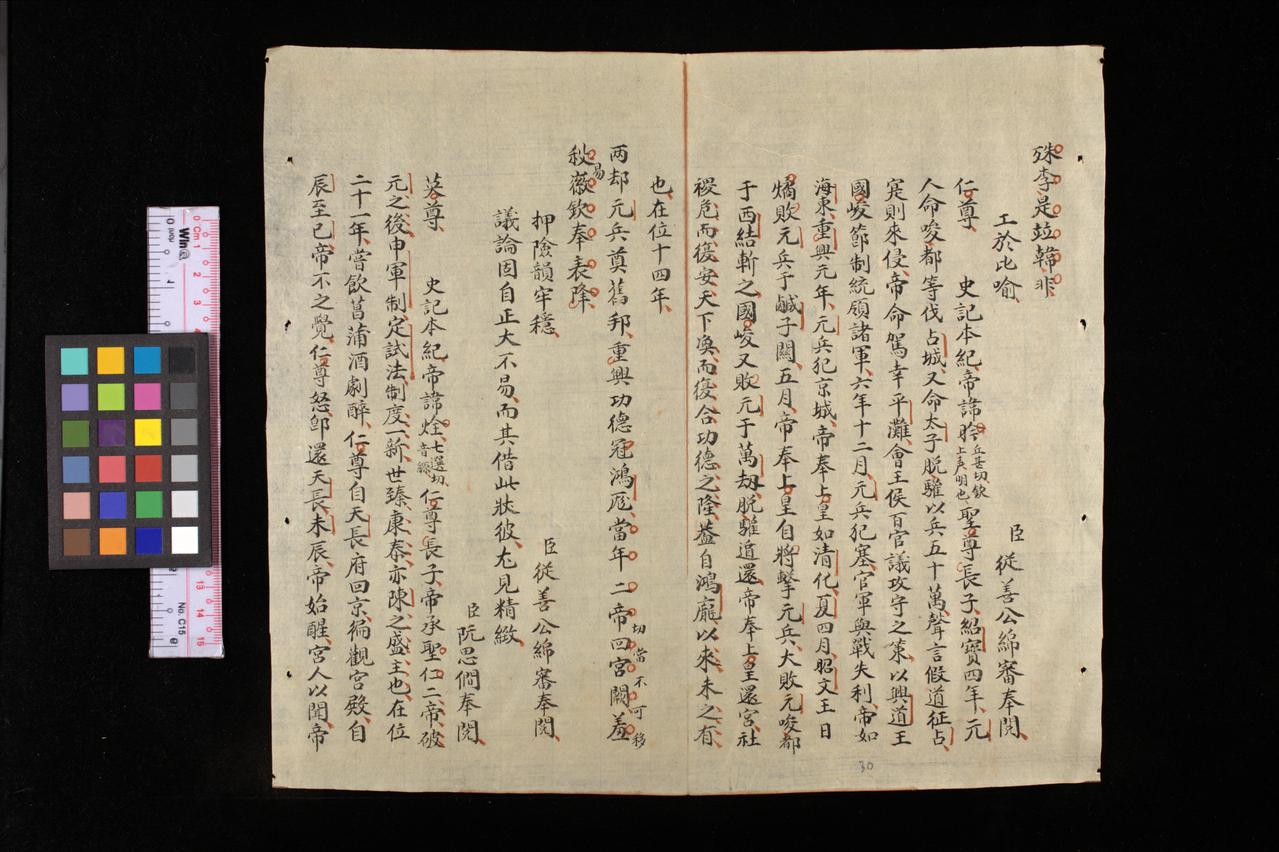 殊李是竝韓非
工於比喻
臣從善公綿審奉閱
仁尊 史記本紀帝諱昑丘甚切欽上声明也聖尊長子紹寶四年元
人命唆都等伐占城又命太子脱驩以兵五十萬聲言假道征占
寔則來侵帝命駕幸平灘會王侯百官議攻守之策以興道王
國峻節制統領諸軍六年十二月元兵犯塞官軍與戰失利帝如
海東重興元年元兵犯京城帝奉上皇如清化夏四月昭文王日
燏敗元兵于鹹子關五月帝奉上皇自將擊元兵大敗元唆都
于西結斬之國峻又敗元于萬刼脱驩遁還帝奉上皇還宮社
稷危而復安天下渙而復合功德之隆蓋自鴻龐以來未之有
也在位十四年
两却元兵奠舊邦重興功德冠鴻厖當年二帝回宮闕羞
切當不可移
易
秋薇欽奉表降
押險韻牢穩
臣從善公綿審奉閱
議論固自正大不易而其借此狀彼尤見精緻
臣阮思僩奉閱
英尊 史記本紀帝諱烇七選切音縓仁尊長子帝承聖仁二帝破
元之後申軍制定試法制度一新世臻康泰亦陳之盛主也在位
二十一年嘗飲菖蒲酒劇醉仁尊自天長府回京徧觀宮殿自
辰至巳帝不之覺仁尊怒即還天長未辰帝始醒宮人以聞帝
30